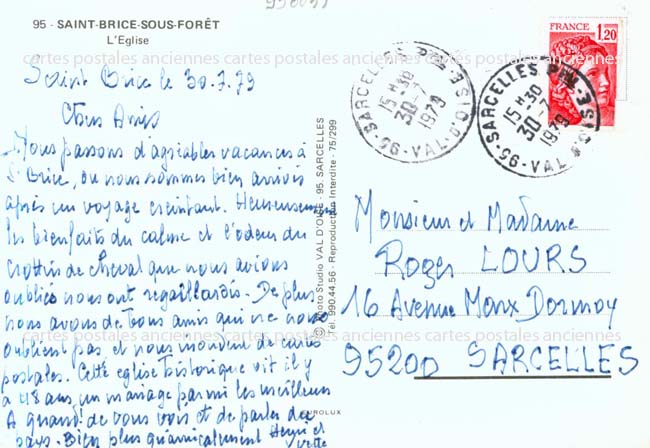 95 - SAINT-BRICE-SOUS-FORÊT
L'Eglise
Saint Brice le 30.7.79
Chers Amis
Nous passons d'agréables vacances à
St Brice, ou nous sommes bien arrivés
après un voyage éreintant. Heureusement
les bienfaits du calme et l'odeur du
crottin de cheval que nous avions
oubliés nous ont regaillardis. De plus
nous avons de bons amis qui ne nous
oublient pas, et nous inondent de cartes
postales. Cette église historique vit il y
a 48 ans, un mariage parmi les meilleurs
A quand de vous voir et de parler du
pays. Bien plus qu'amicalement Henri et
Yvette
© Photo Studio VAL D'OISE - 95. SARCELLES
Tél. 990.44.56 - Reproduction Interdite - 75/299
EUROLUX
SARCELLES PPAL
15 H 30
30-7
1979
95 - VAL-D'OISE
SARCELLES PPAL
15 H 30
30-7
1979
95 - VAL-D'OISE
FRANCE
1,20
Monsieur et Madame
Roger LOURS
16 Avenue Marx Dormoy
95200 SARCELLES
cartes postales anciennes cartes postales anciennes cartes postales anciennes
anciennes cartes postales anciennes cartes postales anciennes cartes postales